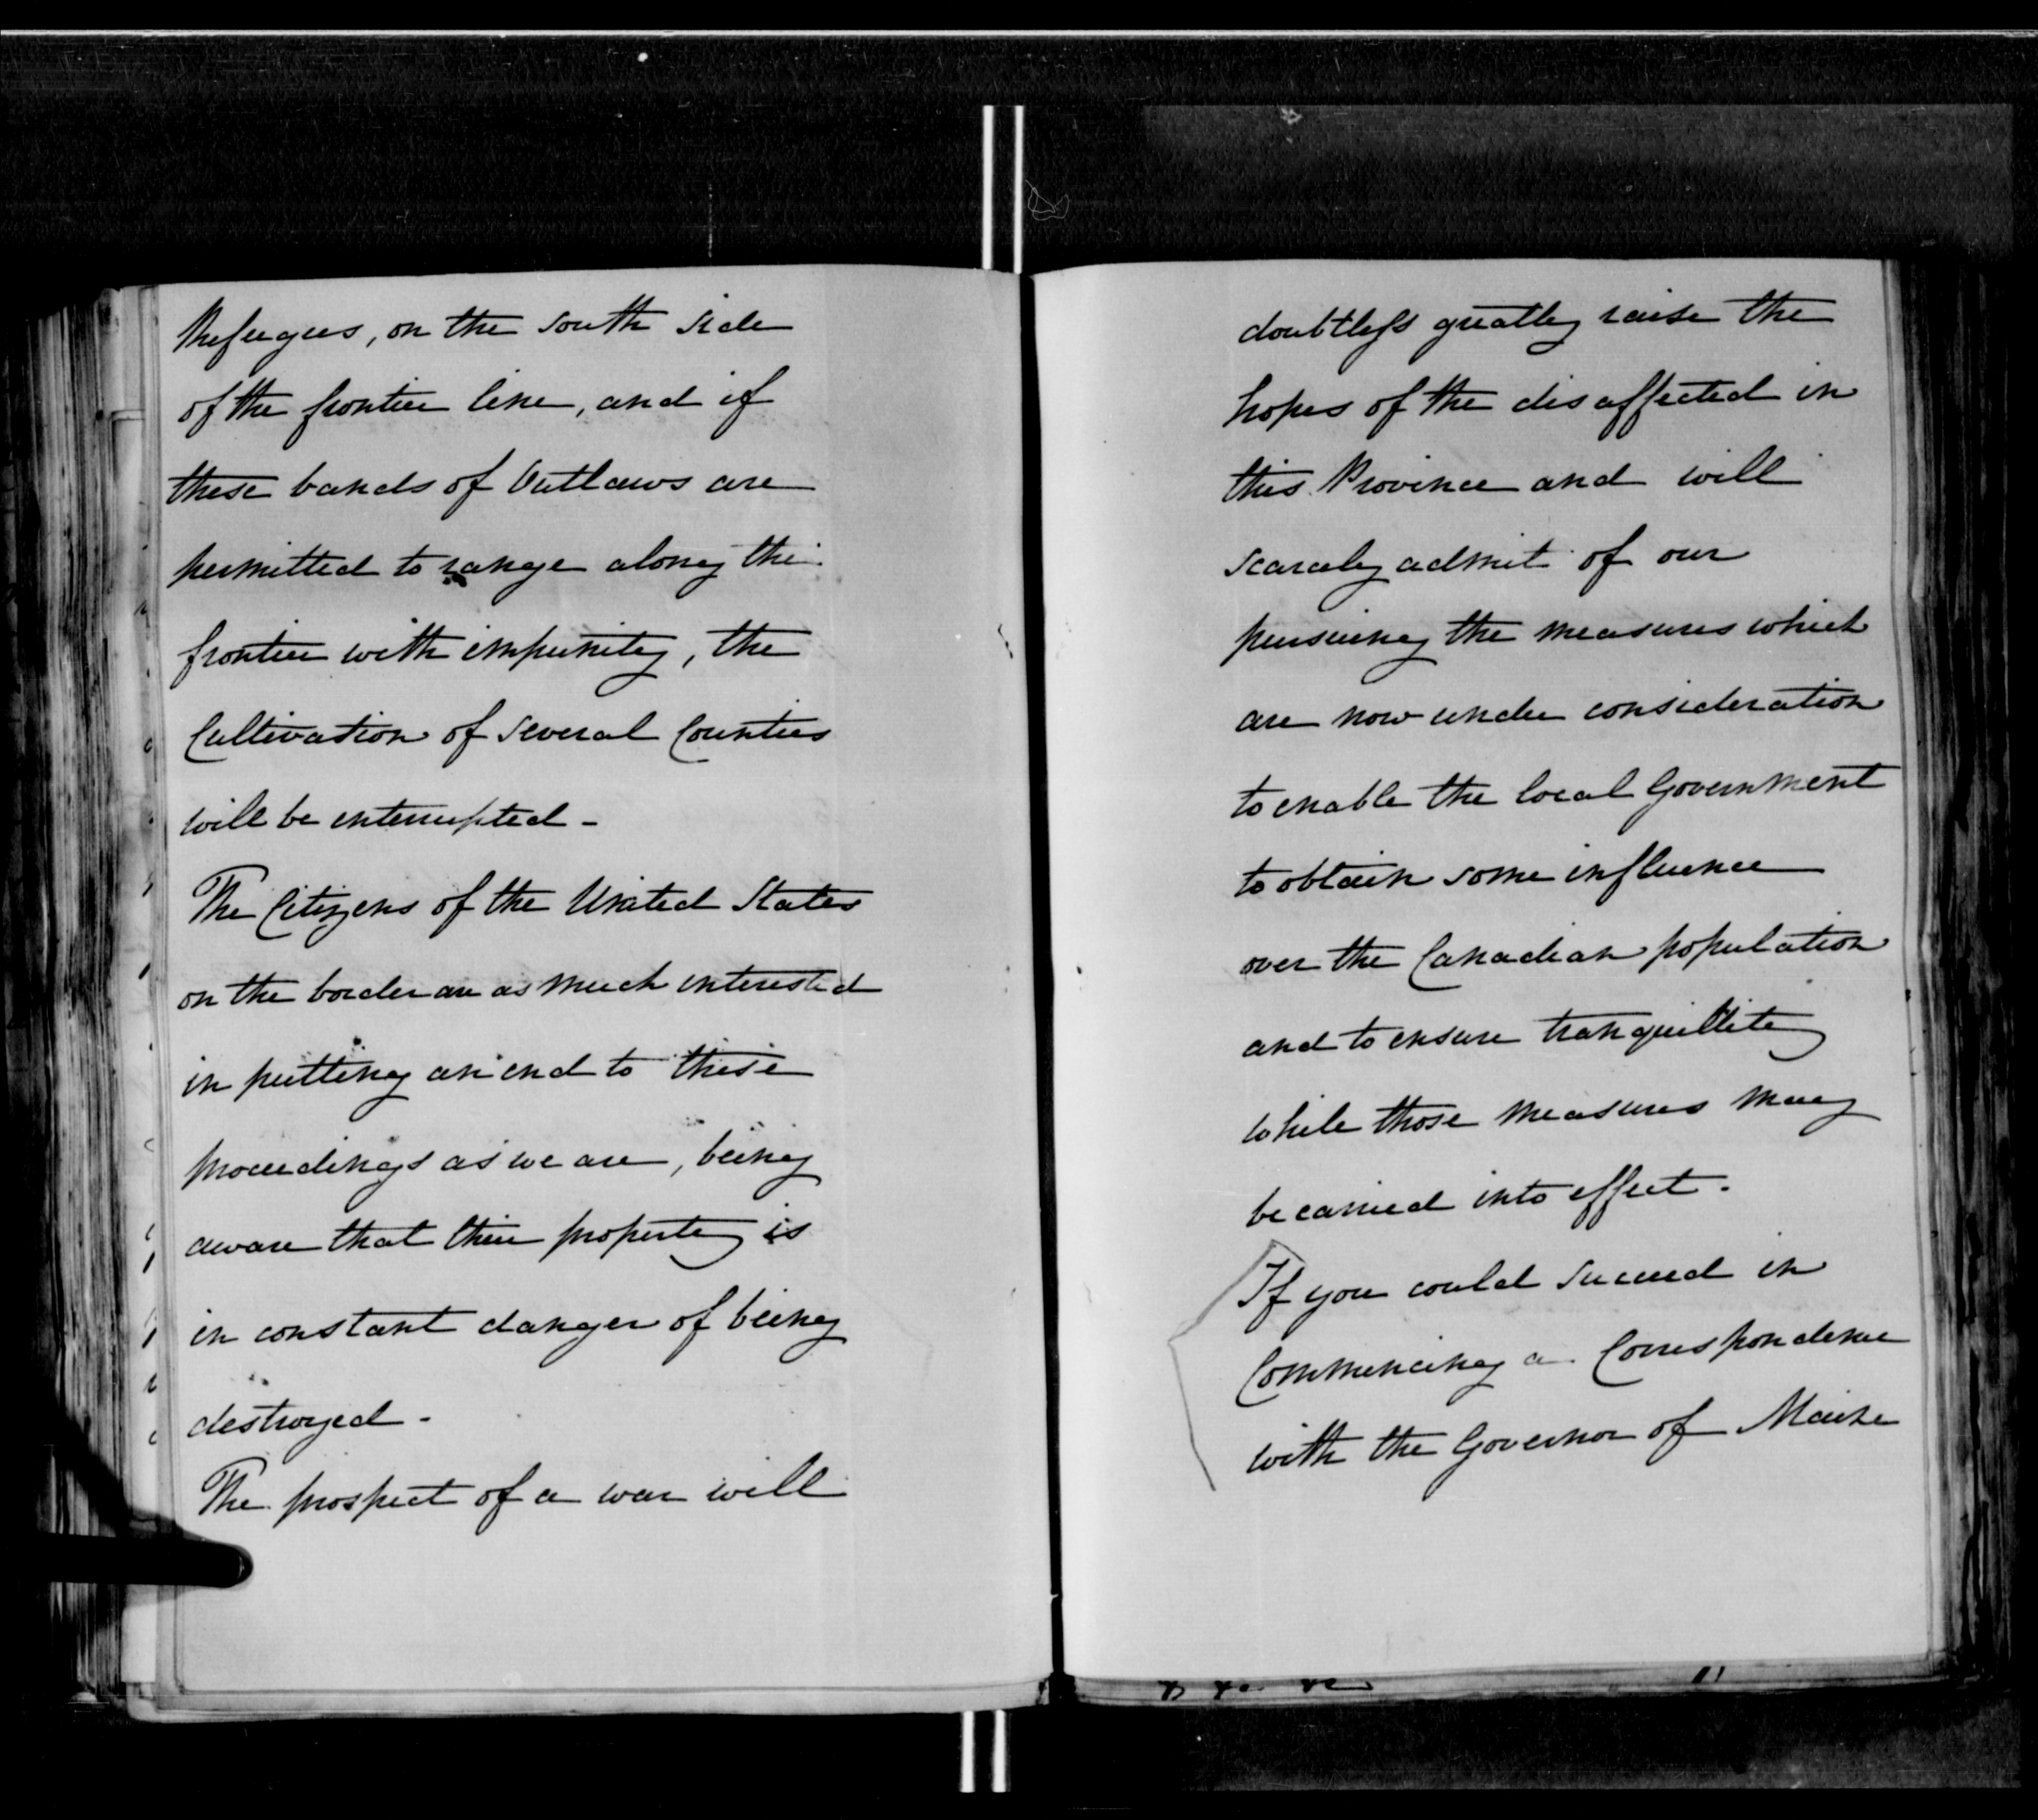 Refugees, on the south side
of the frontier line, and if
these bands of Outlaws are
permitted to range along the
frontier with impunity, the
Cultivation of several Counties
will be interrupted -
The Citizens of the United States
on the border are as much interested
in putting an end to these
proceedings as we are, being
aware that their property is
in constant danger of being
destroyed -
The prospect of a war will
doubtless greatly raise the
hopes of the disaffected in
this Province and will
scarcely admit of our
pursuing the measures which
are now under consideration
to enable the local Government
to obtain some influence
over the Canadian population
and to ensure tranquillity
while those measures may
be carried into effect.
If you could succeed in
Commencing a Correspondence
with the Governor of Maine